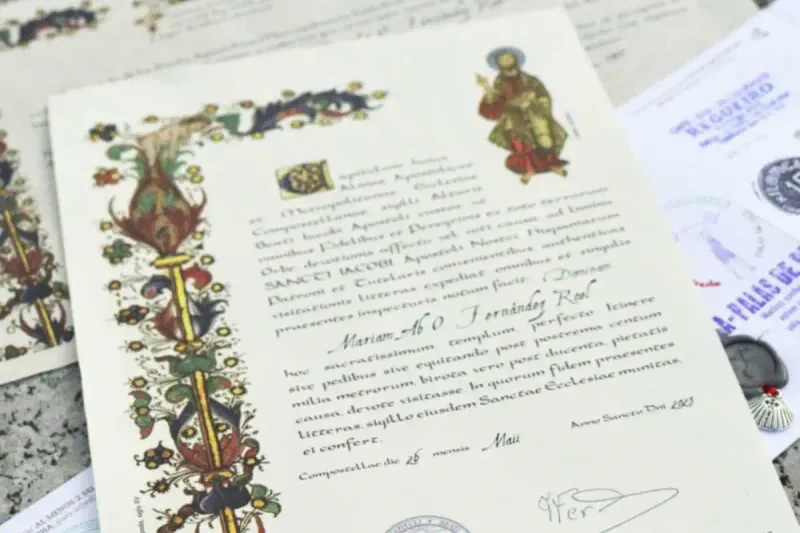 Capitulum huius
Almae Apostolicae
et Metropolitanae Ecclesiae
Compostellanae sigilli Altaris
Beati Iacobi Apostoli custos, ut
omnibus Fidelibus et Peregrinis ex toto terrarum
Orbe, devotionis affectu vel voti causa, ad limina
SANCTI IACOBI, Apostoli Nostri, Hispaniarum
Patroni et Tutelaris convenientibus, authenticas
visitationis litteras expediat, omnibus et singulis
praesentes inspecturis, notum facit: Dominam
Mariam Ab O Fernández Reel
hoc sacratissimum templum, perfecto Itinere
sive pedibus sive equitando post postrema centum
milia metrorum, birota vero post ducenta, pietatis
causa, devote visitasse. In quorum fidem praesentes
litteras, sigillo eiusdem Sanctae Ecclesiae munitas,
ei confert.
Anno Sancto Dni 2023
Compostellae die 26 mensis Maii
REGUEIRO
A-PALAS DE
AL MENOS 2 SE